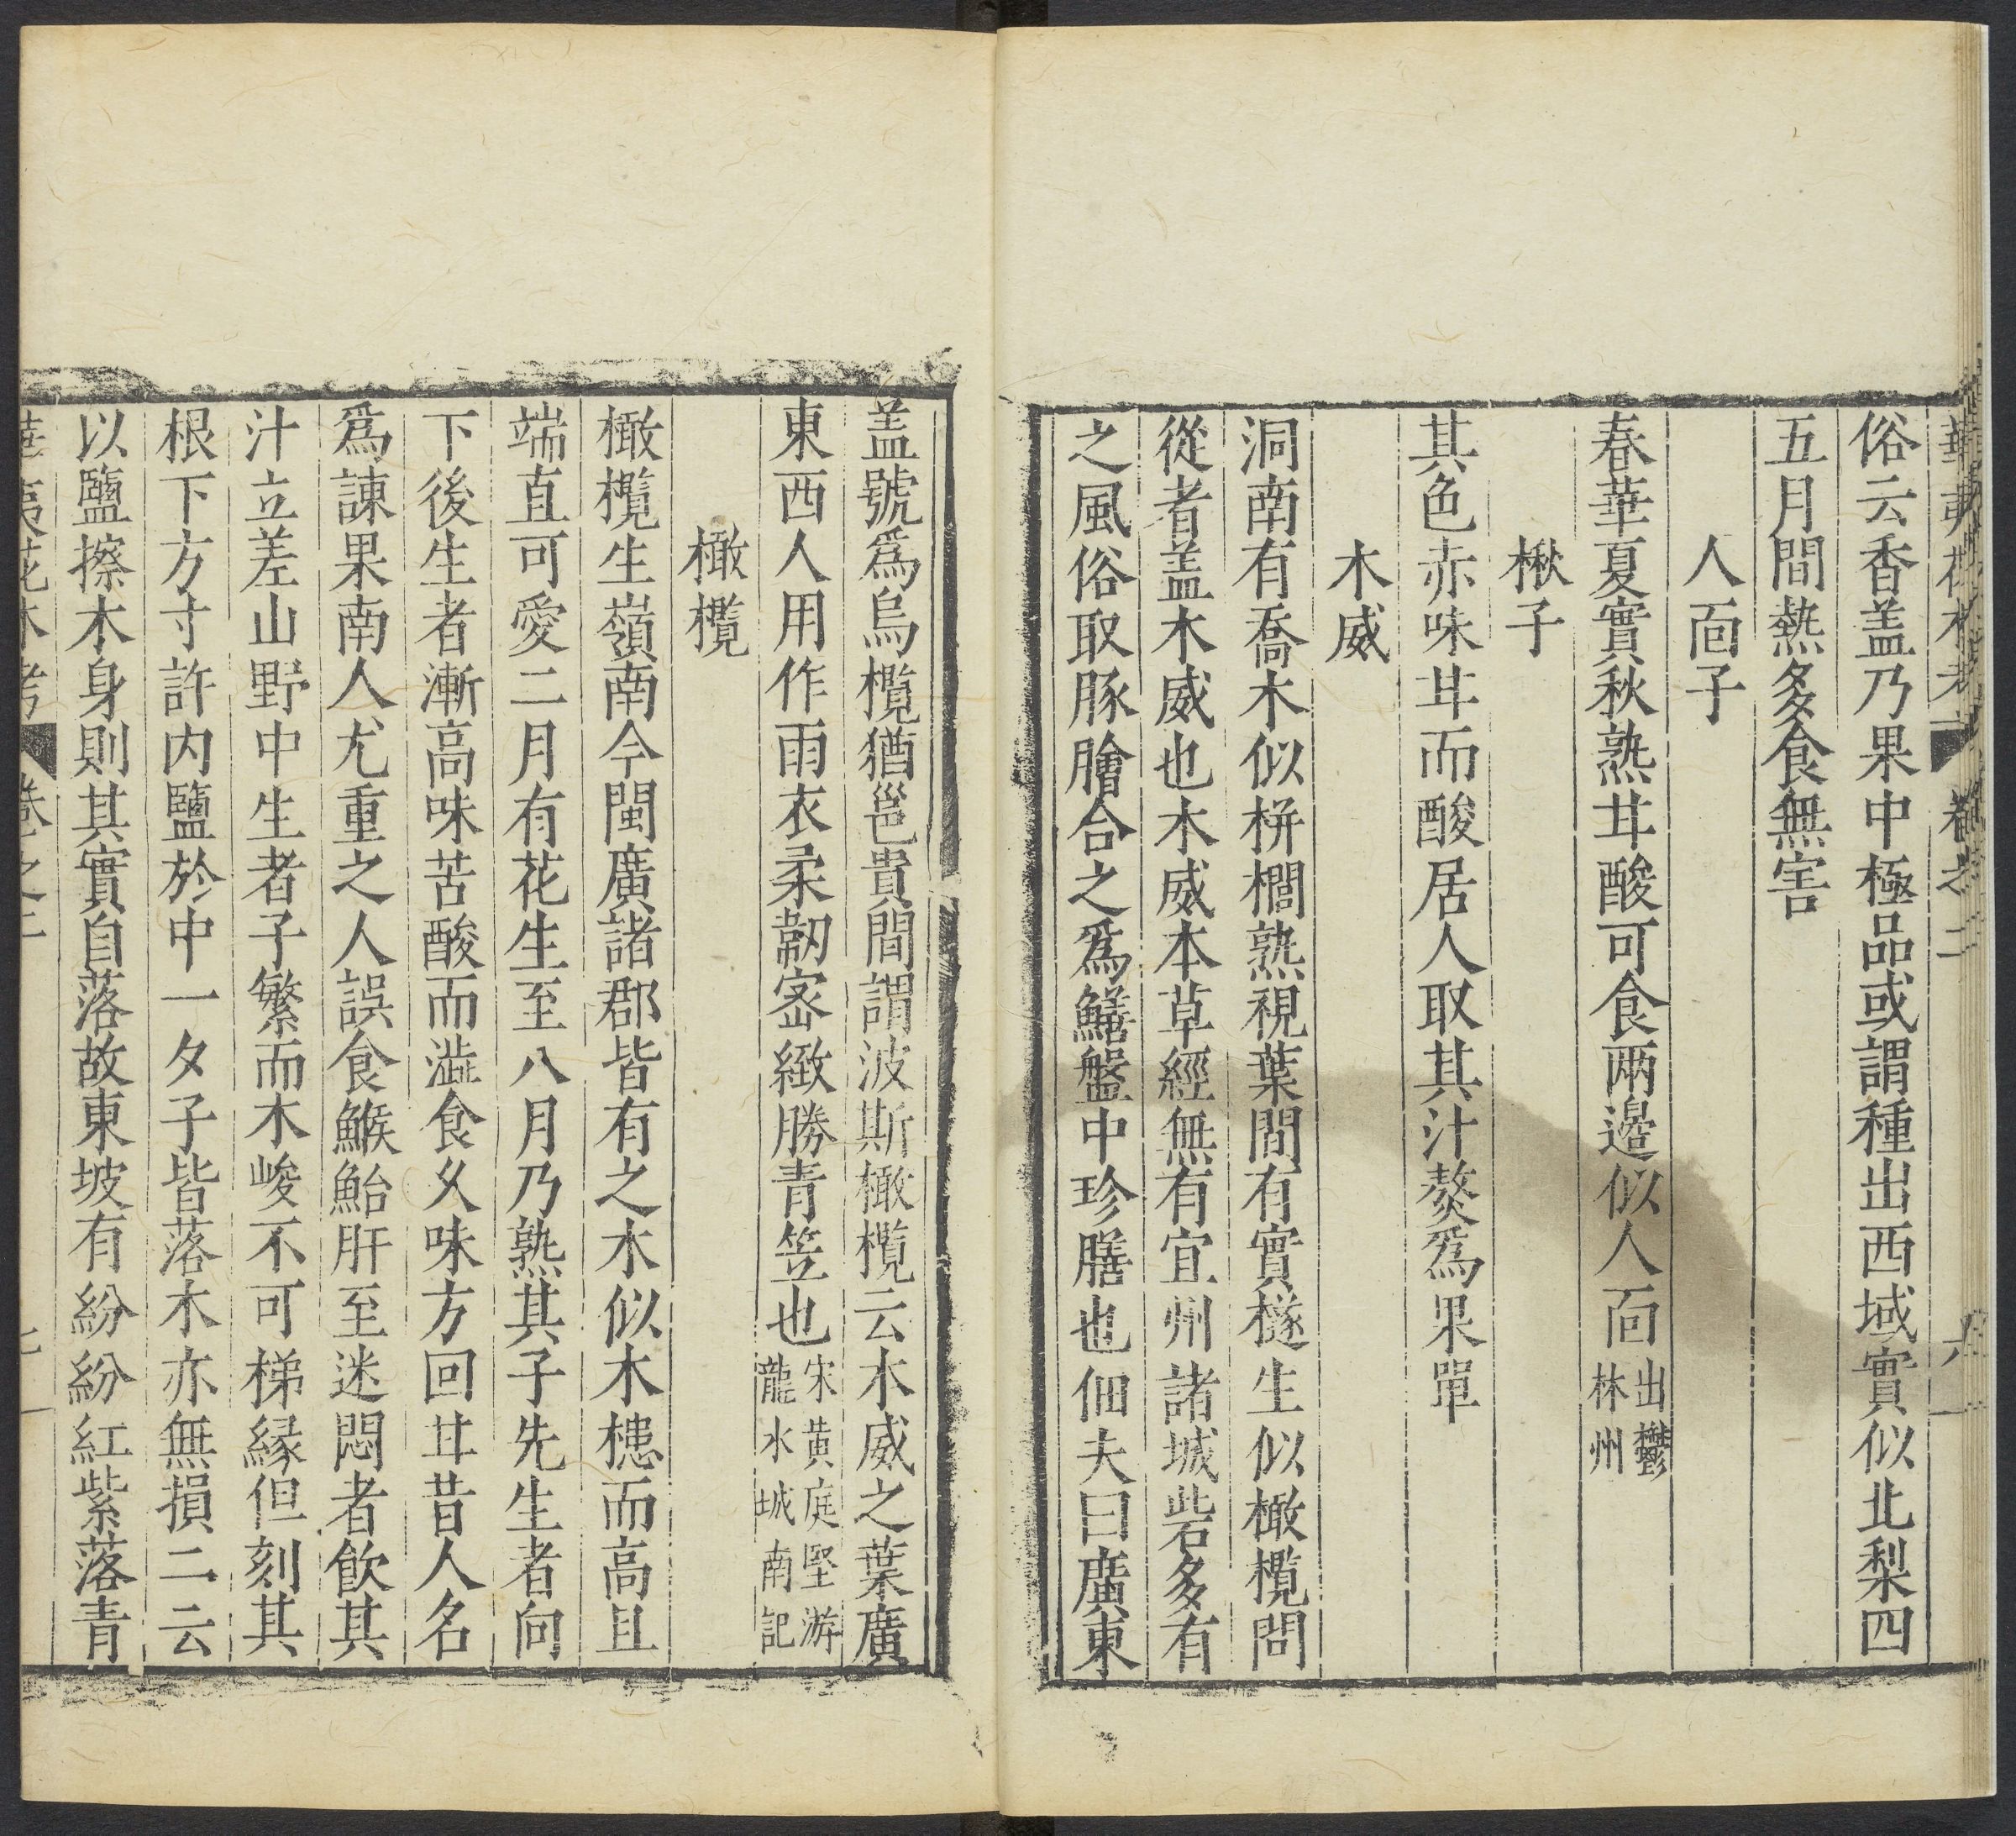 俗云香盖乃果中極品或謂種出西域實似北梨四
五月間熱多食無害
人面子
春華夏實秋熟甘酸可食兩邊似人面
出鬱
林州
楸子
其色赤味甘而酸居人取其汁熬爲果單
木威
洞南有喬木似栟櫚熟視葉間有實檖生似橄欖問
從者盖木威也木威本草經無有宜州諸城砦多有
之風俗取豚膾合之爲鱔盤中珍膳也佃夫曰廣東
盖號爲烏欖猶邕貴間謂波斯橄欖云木威之葉廣
東西人用作雨衣柔韌宻緻勝青笠也
宋黄庭堅游
龍水城南記
橄欖
橄欖生嶺南今閩廣諸郡皆有之木似木槵而高且
端直可愛二月有花生至八月乃熟其子先生者向
下後生者漸高味苦酸而澁食乆味方回甘昔人名
爲諫果南人尤重之人誤食鯸鮐肝至迷悶者飲其
汁立差山野中生者子繁而木峻不可梯緣但刻其
根下方寸許内鹽於中一夕子皆落木亦無損二云
以鹽擦木身則其實自落故東坡有紛紛紅紫落青
華夷花木考 卷之二